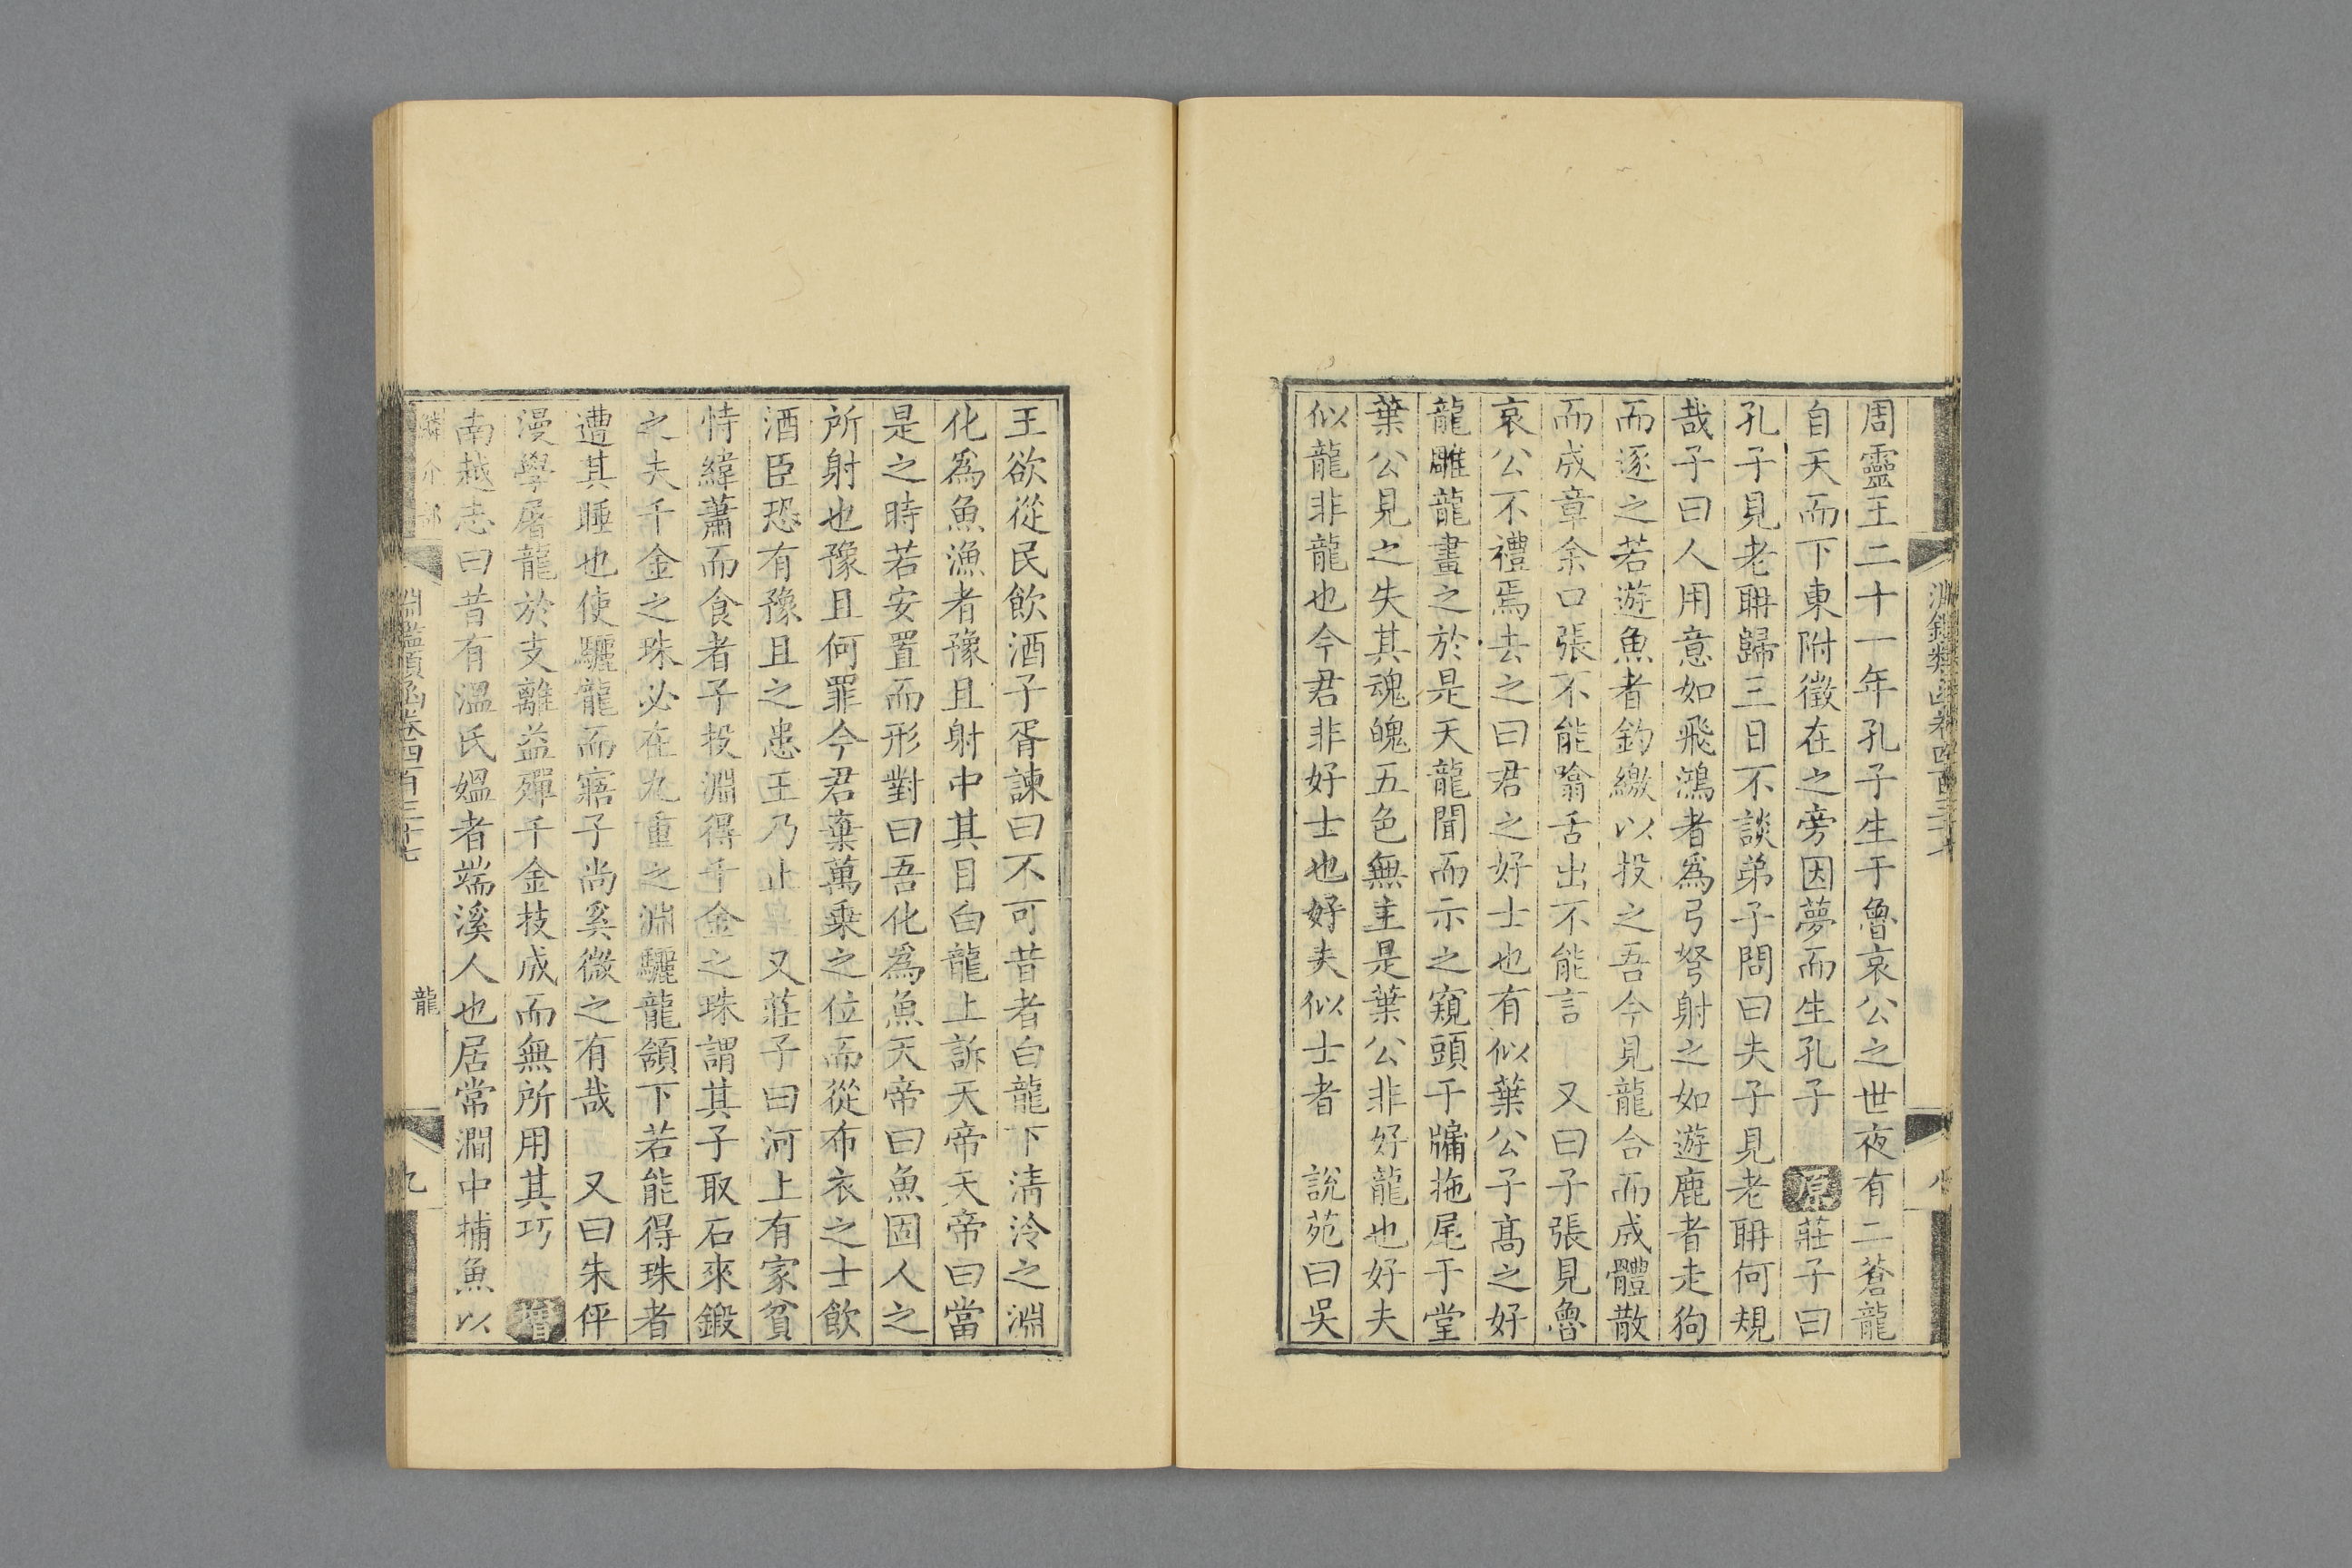 淵鑑類函卷四百三十七
八
周靈王二十一年孔子生于魯哀公之世夜有二蒼龍
自天而下東附徵在之旁因夢而生孔子 原莊子曰
孔子見老聃歸三日不談弟子問曰夫子見老聃何規
哉子曰人用意如飛鴻者爲弓弩射之如遊鹿者走狗
而逐之若遊魚者釣繳以投之吾今見龍合而成體散
而成章余口張不能噏舌出不能言 又曰子張見魯
哀公不禮焉去之曰君之好士也有似葉公子髙之好
龍雕龍畫之於是天龍聞而示之窺頭于牖拖尾于堂
葉公見之失其魂魄五色無主是葉公非好龍也好夫
似龍非龍也今君非好士也好夫似士者 說苑曰吳
王欲從民飲酒子胥諫曰不可昔者白龍下清泠之淵
化爲魚漁者豫且射中其目白龍上訴天帝天帝曰當
是之時若安置而形對曰吾化爲魚天帝曰魚固人之
所射也豫且何罪今君棄萬乘之位而從布衣之士飲
酒臣恐有豫且之患王乃止 又莊子曰河上有家貧
恃緯蕭而食者子投淵得千金之珠謂其子取石來鍛
之夫千金之珠必在九重之淵驪龍頷下若能得珠者
遭其睡也使驪龍而寤子尚奚微之有哉 又曰朱伻
漫學屠龍於支離益殫千金技成而無所用其巧 增
南越志曰昔有溫氏媼者端溪人也居常澗中捕魚以
鱗介部
淵鑑類函卷四百三十七
龍
九